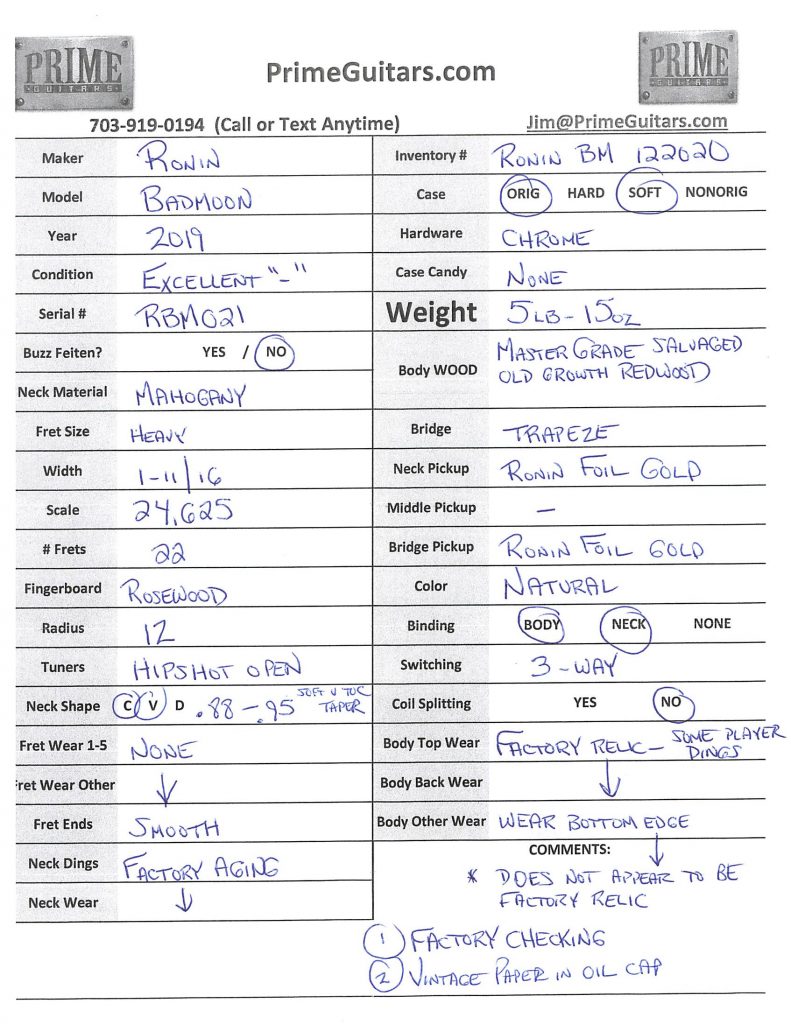 PRIME
GUITARS
PrimeGuitars.com
PRIME
GUITARS
703-919-0194 (Call or Text Anytime)
Jim@PrimeGuitars.com
Maker RONIN
Model BADMOON
Year 2019
Condition EXCELLENT "-"
Serial # RBM021
Buzz Feiten? YES / NO
Neck Material MAHOGANY
Fret Size HEAVY
Width 1-11/16
Scale 24.625
# Frets 22
Fingerboard ROSEWOOD
Radius 12
Tuners HIPSHOT OPEN
Neck Shape C V D .88 - .95 SOFT V TO C
TAPER
Fret Wear 1-5 NONE
Fret Wear Other ↓
Fret Ends SMOOTH
Neck Dings FACTORY AGING
Neck Wear ↓
Inventory # RONIN BM 122020
Case ORIG HARD SOFT NONORIG
Hardware CHROME
Case Candy NONE
Weight 5LB-15OZ
Body WOOD MASTER GRADE SALVAGED
OLD GROWTH REDWOOD
Bridge TRAPEZE
Neck Pickup RONIN FOIL GOLD
Middle Pickup -
Bridge Pickup RONIN FOIL GOLD
Color NATURAL
Binding BODY NECK NONE
Switching 3-WAY
Coil Splitting YES NO
Body Top Wear FACTORY RELIC - SOME PLAYER
DINGS
Body Back Wear ↓
Body Other Wear WEAR BOTTOM EDGE
COMMENTS: ↓
* DOES NOT APPEAR TO BE
FACTORY RELIC
1 FACTORY CHECKING
2 VINTAGE PAPER IN OIL CAP